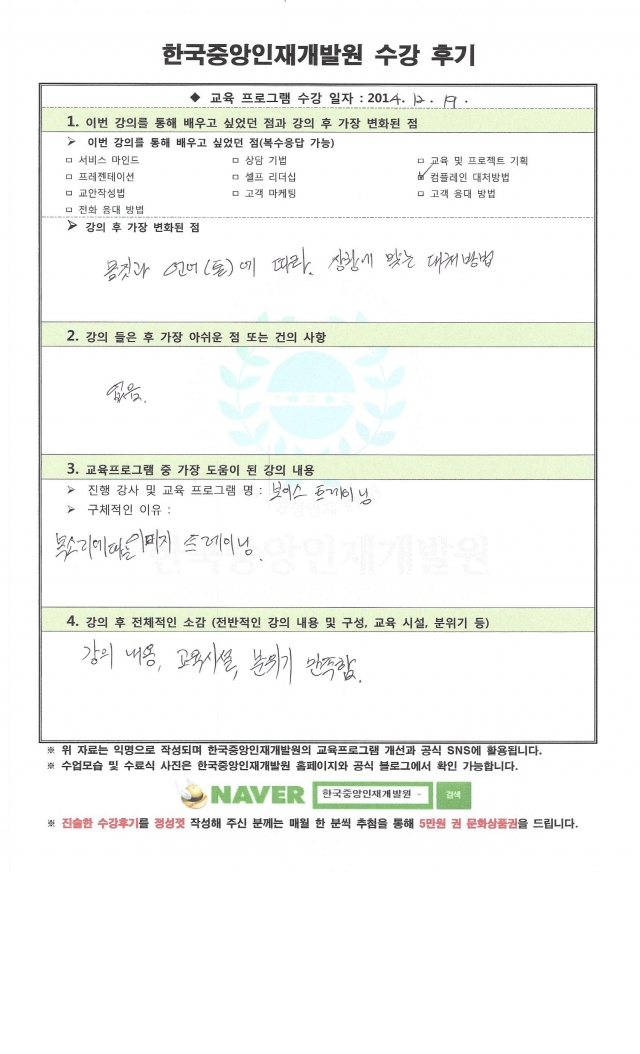 한국중앙인재개발원 수강 후기
◆ 교육 프로그램 수강 일자 : 2014. 12. 19.
1. 이번 강의를 통해 배우고 싶었던 점과 강의 후 가장 변화된 점
➢ 이번 강의를 통해 배우고 싶었던 점(복수응답 가능)
□ 서비스 마인드 □ 상담 기법 □ 교육 및 프로젝트 기획
□ 프레젠테이션 □ 셀프 리더십 ☑ 컴플레인 대처방법
□ 교안작성법 □ 고객 마케팅 □ 고객 응대 방법
□ 전화 응대 방법
➢ 강의 후 가장 변화된 점
몸짓과 언어(톤)에 따라. 상황에 맞는 대처방법
2. 강의 들은 후 가장 아쉬운 점 또는 건의 사항
없음.
3. 교육프로그램 중 가장 도움이 된 강의 내용
➢ 진행 강사 및 교육 프로그램 명 : 보이스 트레이닝
➢ 구체적인 이유 :
목소리에따른이미지 트레이닝.
한국중앙인재개발원
4. 강의 후 전체적인 소감 (전반적인 강의 내용 및 구성, 교육 시설, 분위기 등)
강의 내용, 교육시설, 분위기 만족함.
※ 위 자료는 익명으로 작성되며 한국중앙인재개발원의 교육프로그램 개선과 공식 SNS에 활용됩니다.
※ 수업모습 및 수료식 사진은 한국중앙인재개발원 홈페이지와 공식 블로그에서 확인 가능합니다.
NAVER 한국중앙인재개발원 검색
※ 진솔한 수강후기를 정성껏 작성해 주신 분께는 매월 한 분씩 추첨을 통해 5만원 권 문화상품권을 드립니다.